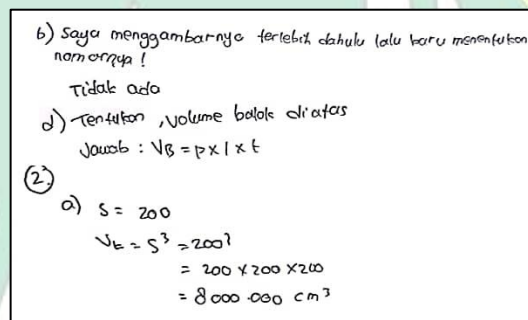 b) Saya menggambarnya terlebih dahulu lalu baru menentukan
nomornya !
Tidak ada
d) Tentukan , volume balok diatas
Jawab : VB = p x l x t
2.
a) S = 200
Vk = S³ = 200³
= 200 x 200 x 200
= 8000.000 cm³